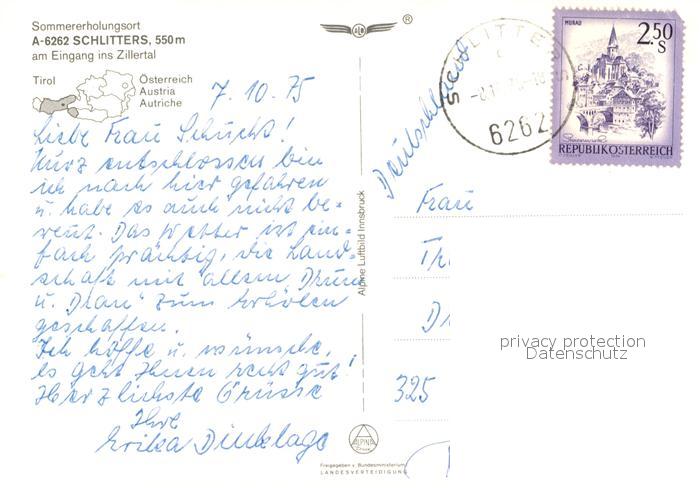 Sommererholungsort
A-6262 SCHLITTERS, 550 m
am Eingang ins Zillertal
Tirol
Österreich
Austria
Autriche
7.10.75
Liebe Frau Schucht!
Kurz entschlossen bin
ich nach hier gefahren
u. habe es auch nicht be-
reut. Das Wetter ist ein-
fach prächtig, die Land-
schaft mit "allem Drum
u. Dran" zum Erholen
geschaffen.
Ich hoffe u. wünsche,
es geht Ihnen recht gut!
Herzlichste Grüsse
Ihre
Erika Dinklage
Alpine Luftbild Innsbruck
ALPINA
Freigegeben v. Bundesministerium
LANDESVERTEIDIGUNG
®
Deutschland
SCHLITTERS
6262
MURAU
2.50
S
REPUBLIK ÖSTERREICH
Frau
325
privacy protection
Datenschutz